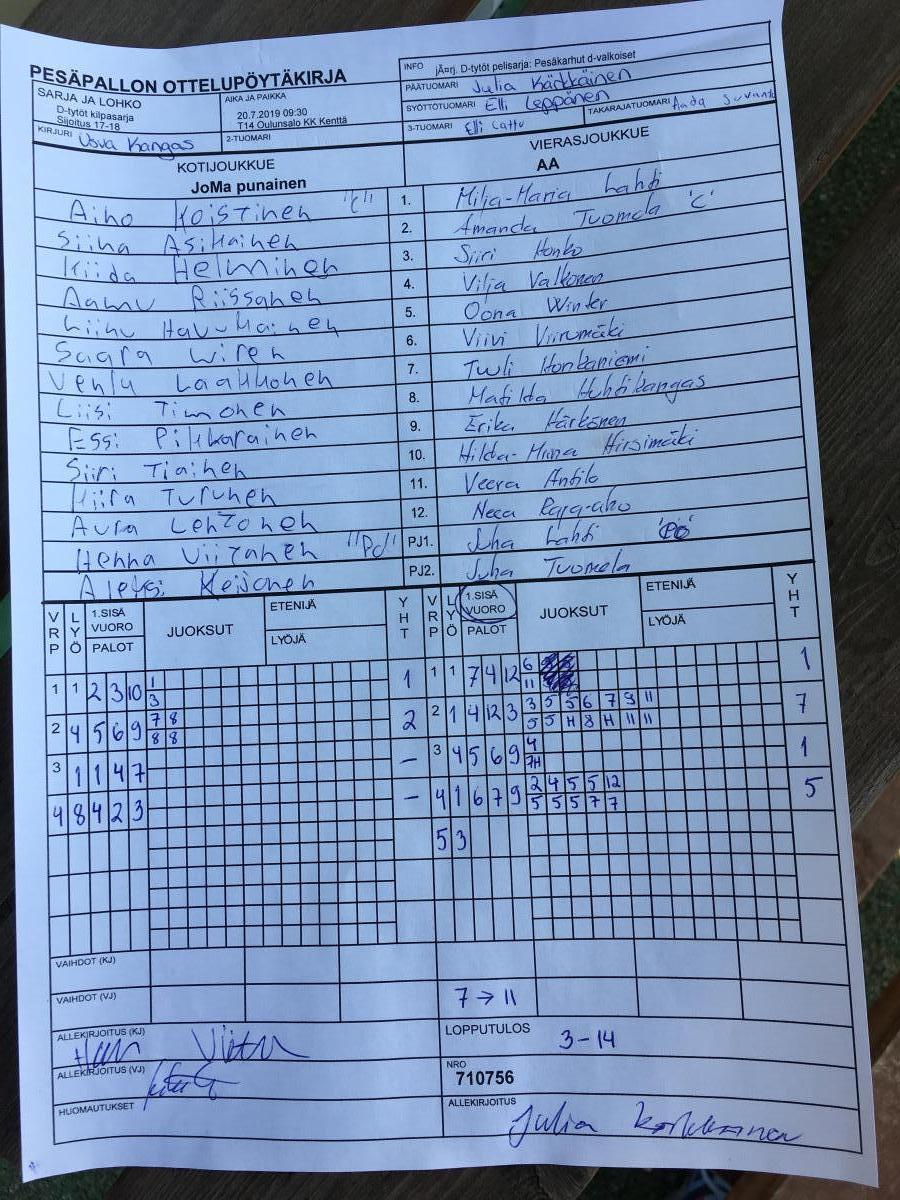 PESÄPALLON OTTELUPÖYTÄKIRJA
INFO jÄ¤rj. D-tytöt pelisarja: Pesäkarhut d-valkoiset
PÄÄTUOMARI Julia Kärkkäinen
SARJA JA LOHKO
D-tytöt kilpasarja
Sijoitus 17-18
AIKA JA PAIKKA
20.7.2019 09:30
T14 Oulunsalo KK Kenttä
SYÖTTÖTUOMARI Elli Leppänen
TAKARAJATUOMARI Aada
KIRJURI Usva Kangas
2-TUOMARI
3-TUOMARI Elli
KOTIJOUKKUE
JoMa punainen
VIERASJOUKKUE
AA
Aino Koistinen "C" 1. Milja-Maria Lahti
Siina Asikainen 2. Amanda Tuomela 'C'
Kiida Helminen 3. Siiri Honko
Aamu Riissanen 4. Vilja Valkonen
Liinu Havukainen 5. Oona Winter
Saara Wiren 6. Viivi Viirumäki
Venla Laakkonen 7. Tuuli Honkaniemi
Liisi Timonen 8. Matilda Huhtikangas
Essi Pitkäräinen 9. Erika Härkönen
Siiri Tiainen 10. Hilda-Miina Hirsimäki
Kiira Turunen 11. Veera Anttila
Aura Lehtonen 12. Neea Raja-aho
Henna Viitanen "PJ" PJ1. Juha Lahti
Aleksi Keijonen PJ2. Juha Tuomela
VRP LYÖ 1.SISÄ VUORO PALOT JUOKSUT ETENIJÄ LYÖJÄ YHT VRP LYÖ 1.SISÄ VUORO PALOT JUOKSUT ETENIJÄ LYÖJÄ YHT
1 1 2 3 10 1 1 1 1 7 4 12 6 1
3 11
2 4 5 6 9 7 8 2 2 1 4 12 3 3 5 5 6 7 9 11 7
8 8 5 5 H 8 H 11 11
3 1 1 4 7 – 3 4 5 6 9 4 1
7H
4 8 4 2 3 – 4 1 6 7 9 2 4 5 5 12 5
5 5 5 7 7
5 3
VAIHDOT (KJ)
VAIHDOT (VJ) 7 → 11
ALLEKIRJOITUS (KJ)
LOPPUTULOS 3-14
ALLEKIRJOITUS (VJ)
NRO
710756
HUOMAUTUKSET
ALLEKIRJOITUS Julia Karkkainen